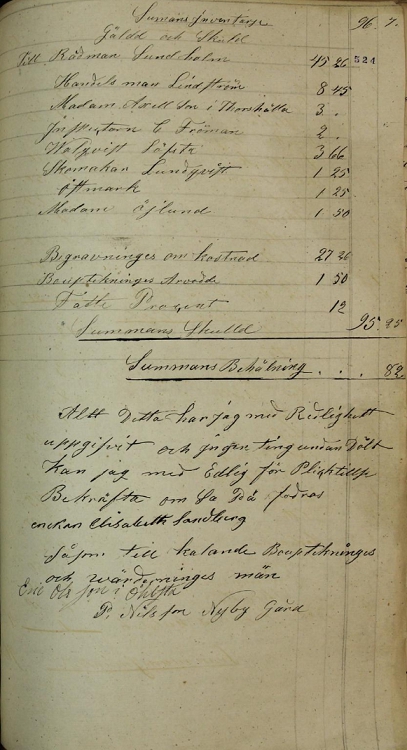 Sumans Inventarie 96. 7.
Gäldd och Skuld
Till Rådman Lundholm 45 26 524
Handels man Lindström 8 45
Madam Axell son i Thorshälla 3 .
Inspektorn C Fröman 2 .
Walqvist 3 66
Skomakar Lundqvist 1 25
Östmark 1 25
Madam Öjlund 1 50
Begravninges om kostnad 27 26
Bouptekninges Arvode 1 50
Fatti Procent 12
Summans Skulld 95 25
Summans Behålning . . . 82
Altt Detta har jag med Redlighett
uppgifvit och ingen ting undan Dölt
Kan jag med Edlig för Plightellse
Bekräfta om Så På fodras
enckan Elisabeth Sandberg
Såsom till kalande Bouptekninges
och wärderninges män
Eric Olsson i
P. Nilsson Nyby Gård